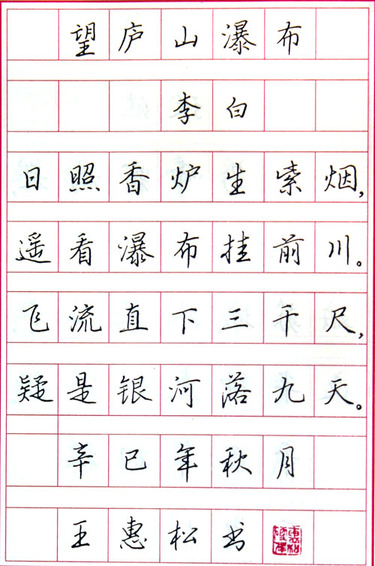 望庐山瀑布
李白
日照香炉生紫烟,
遥看瀑布挂前川。
飞流直下三千尺,
疑是银河落九天。
辛已年秋月
王惠松书